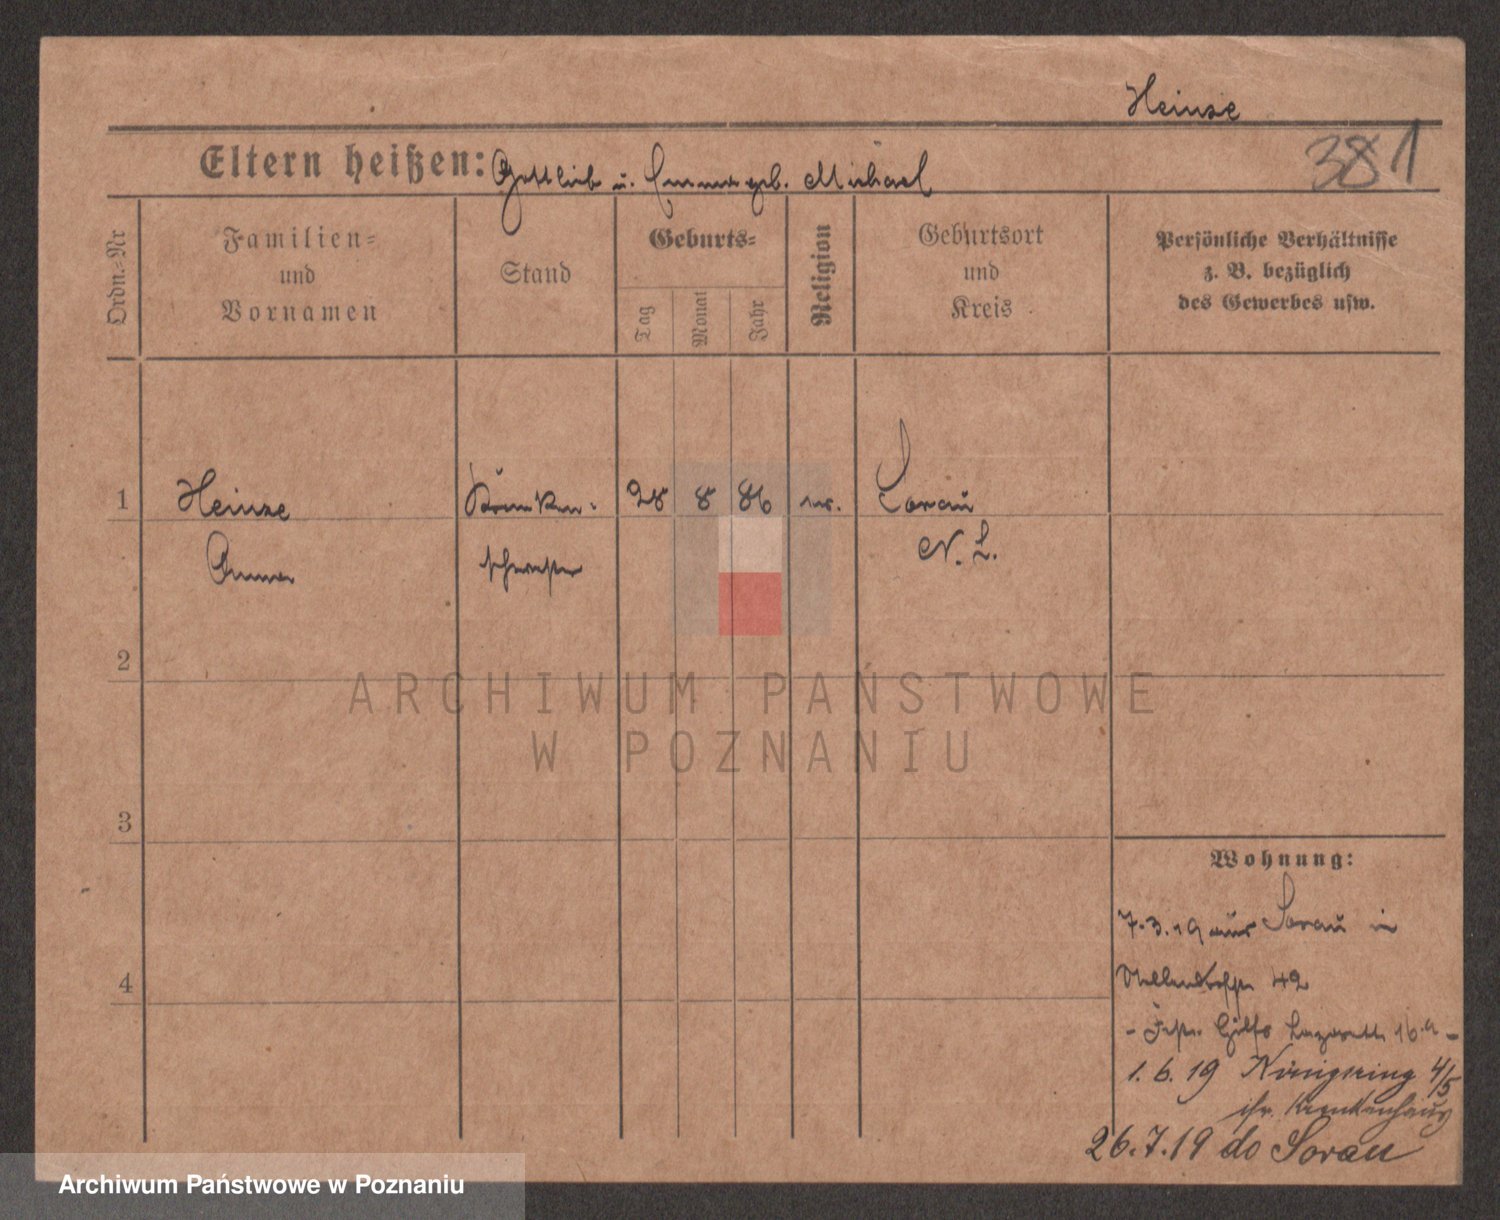 Heinze
Eltern heißen: Gottlieb u. Emma geb. Michael
381
Ordn.-Nr
Familien-
und
Vornamen
Stand
Geburts-
Tag
Monat
Jahr
Religion
Geburtsort
und
Kreis
Persönliche Verhältnisse
z. B. bezüglich
des Gewerbes usw.
1 Heinze Kranken- 28 8 86 ev. Sorau
Anna schwester N. L.
2
3
4
ARCHIWUM PAŃSTWOWE
W POZNANIU
Wohnung:
7.3.19 aus Sorau in
42
- Fest. Hilfs Lazarett 16.a -
1.6.19 Königsring 4/5
isr. Krankenhaus
26.7.19 do Sorau
Archiwum Państwowe w Poznaniu